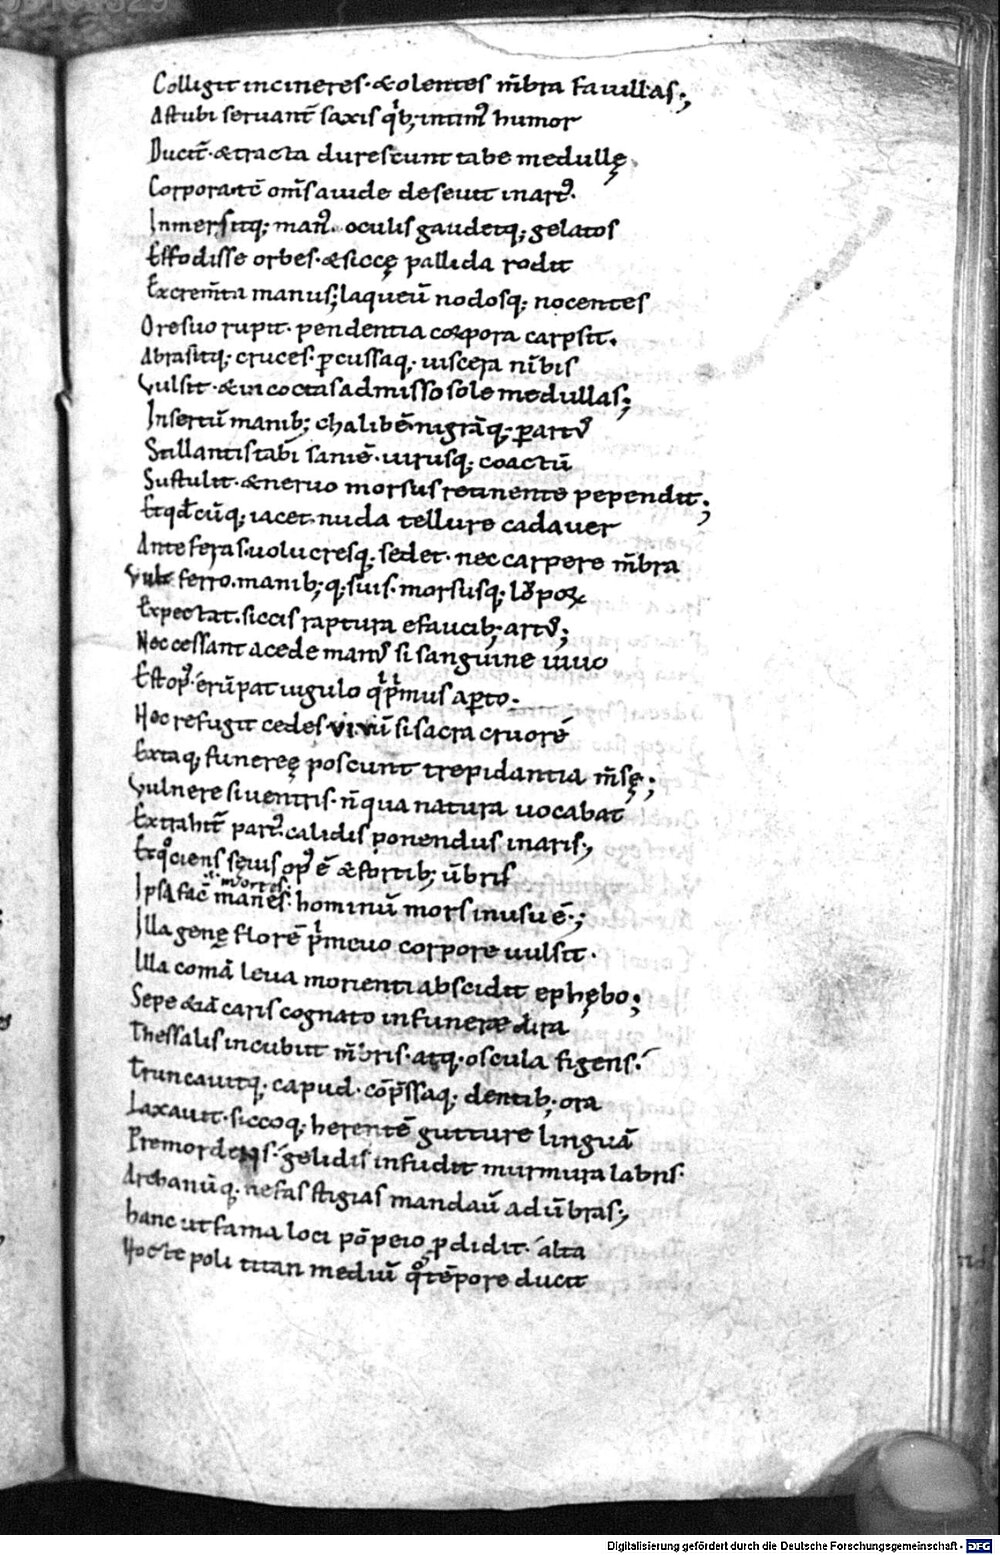 Colligit incineres·&olentes m̄bra fauillas;
Astubi seruant̄ saxis qͥb; intim᷒ humor
Ducit̄·&tracta durescunt tabe medullę
Corpora·tc̄ om̄s auide deseuit inart᷒·
Inmersitq; man᷒· oculis gaudetq; gelatos
Effodisse orbes·&siccę pallida rodit
Excrem̄ta manus; laqueū nodosq; nocentes
Oresuo rupit· pendentia corpora carpsit.
Abrasitq; cruces· ꝑcussaq; uiscera nībis
Vulsit·&incoctas admisso sole medullas;
Insertū manib; chalibē·nigrāq; ꝑ art᷒
Stillantis tabī saniē·uirusq; coactū
Sustulit·&neruo morsus retinente pependit;
Etqd̄cūq; iacet·nuda tellure cadauer
Ante feras·uolucresq; sedet·nec carpere m̄bra
Vult ferro·manib; q; suis·morsusq; lupoꝝ
Expectat·siccis raptura efaucib; art᷒;
Nec cessant acede man᷒ si sanguine uiuo
Est op᷒·érūpat iugulo qͥ pͥmus aꝑto·
Nec refugit cedes viuū si sacra cruorē
Extaq; funereę poscunt trepidantia m̄sę;
Vulnere si uentris·n̄ qua natura uocabat
Extrahit̄ part᷒ calidis ponendus inaris;
Etqͦciens sęuis op᷒ ē &fortib; ūbris
mortes·
Ipsa fac̄ manes·hominū mors inusu ē·;
Illa genę florē pͥmeuo corpore uulsit·
Illa comā leua morienti abscidit ephębo;
Sepe &iā caris cognato infunere dira
Thessalis incubuit m̄bris·atq; oscula figens·
Truncauitq; capud·cōp̄ssaq; dentib; ora
Laxauit·siccoq; herentē gutture linguā
Premordens·gelidis infudit murmura labris·
Archanūq; nefas stigias mandaū adūbras;
hanc ut fama loci pōpeio ꝓdidit·alta
Nocte poli titan mediū qͦ tēpore ducit
Digitalisierung gefördert durch die Deutsche Forschungsgemeinschaft - DFG